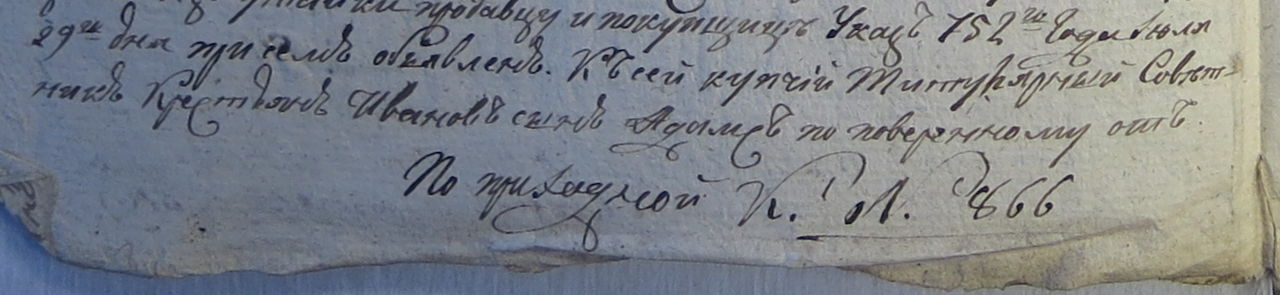 продавцу и покупщицѣ Указъ 752го Года Июля
29го дня при семъ объявленъ. Къ сей купчій Титулярный Совѣт=
никъ Крестьянъ Ивановъ сынъ Адамсъ по повереному отъ
По приходной К. N. 866